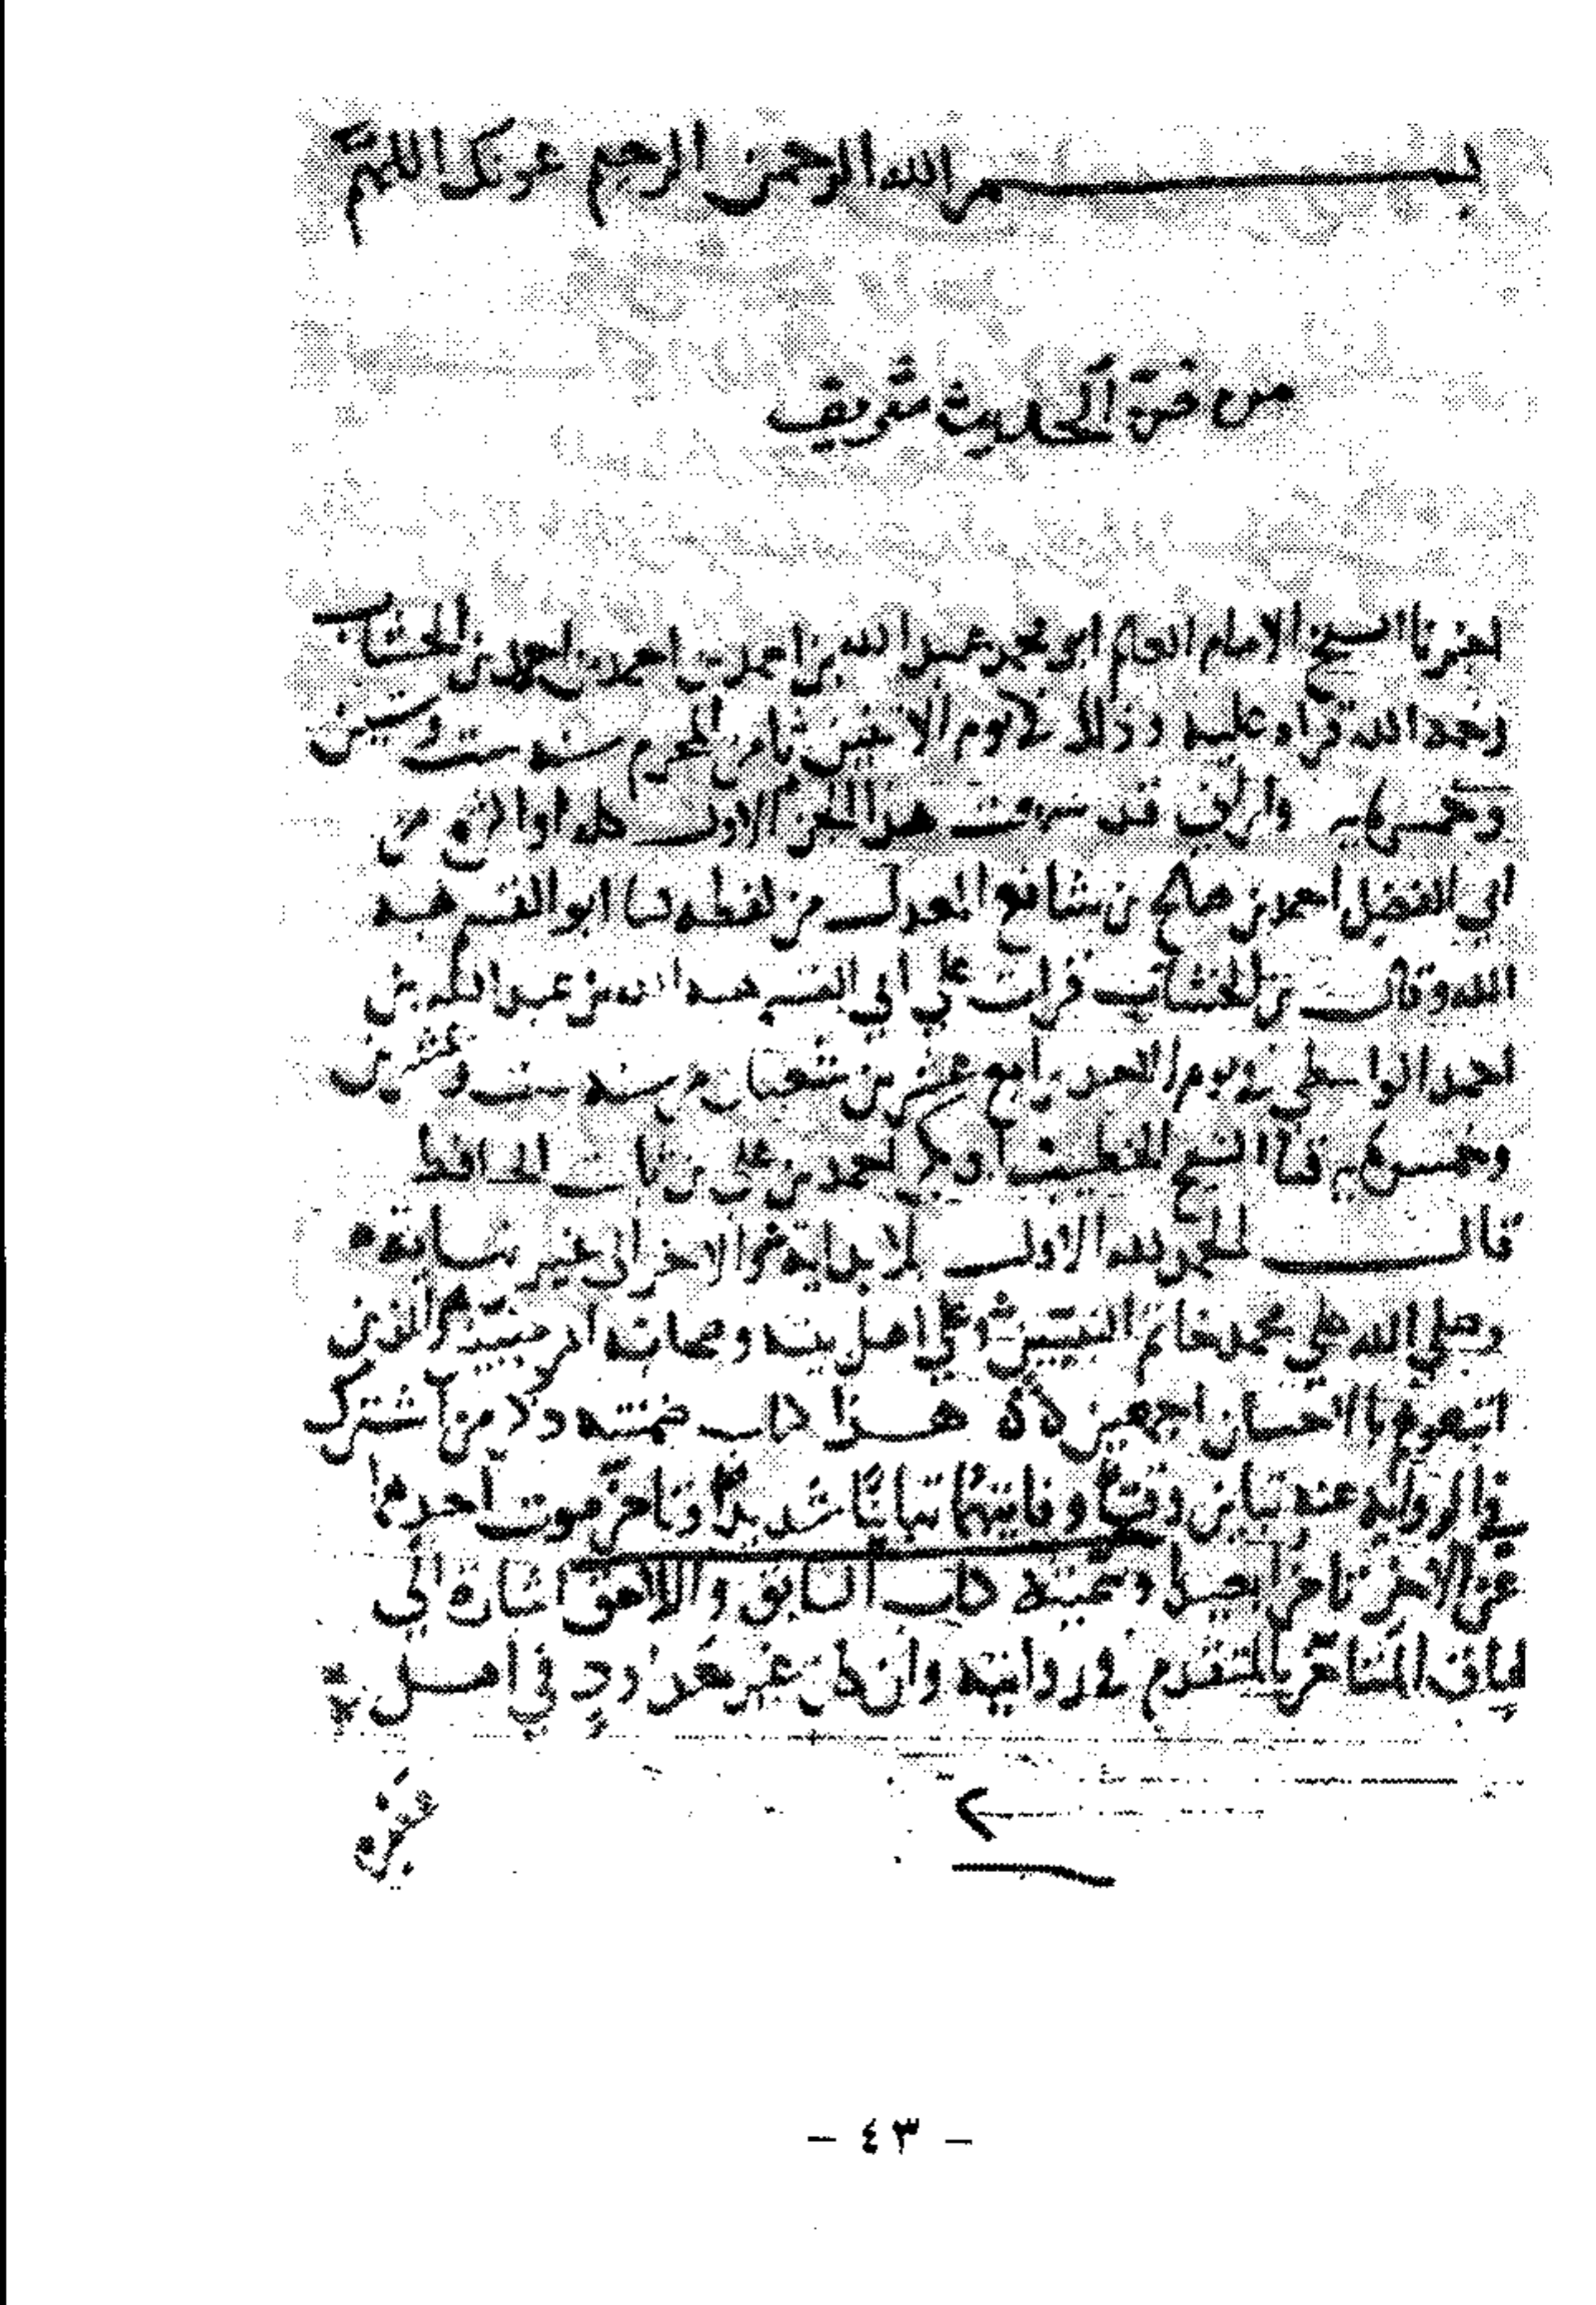 بسم الله الرحمن الرحيم عونك اللهم
من فن الحديث شريف
اخبرنا الشيخ الامام العالم ابو محمد عبد الله بن احمد بن احمد بن احمد بن الخشاب
رحمه الله قراه عليه وذلك في يوم الاثنين ثامن المحرم سنه ست وستين
وخمس مايه قد سمعت هذا الجز الاول من
ابي الفضل احمد بن صالح بن شافع المعدل من لفظه ابو القسم هبه
الله وقال بن الخشاب قرات على ابي القسم هبه الله بن عبد الله بن
احمد الواسطي في يوم رابع عشر من شعبان من سنه ست وعشرين
وخمس مايه قثنا الشيخ الخطيب ابو بكر احمد بن علي بن ثابت الحافظ
قال الحمد لله الاول بلا بداية والاخر الى غير نهاية
وصلى الله على محمد خاتم النبيين وعلى اهل بيته وصحابته المرضيين ثم الذين
اتبعوهم باحسان اجمعين هذا كتاب ضمنته ذكر من اشترك
في الرواية عنه تباين وقت وفاتيهما تباينًا شديدًا وتاخر موت احدهما
عن الاخر تاخرًا بعيدا وسميته كتاب السابق واللاحق اشارة الى
لحاق المتاخر بالمتقدم في روايته وان كان غير معدود في اهل
عصره
٢
- ٤٣ -